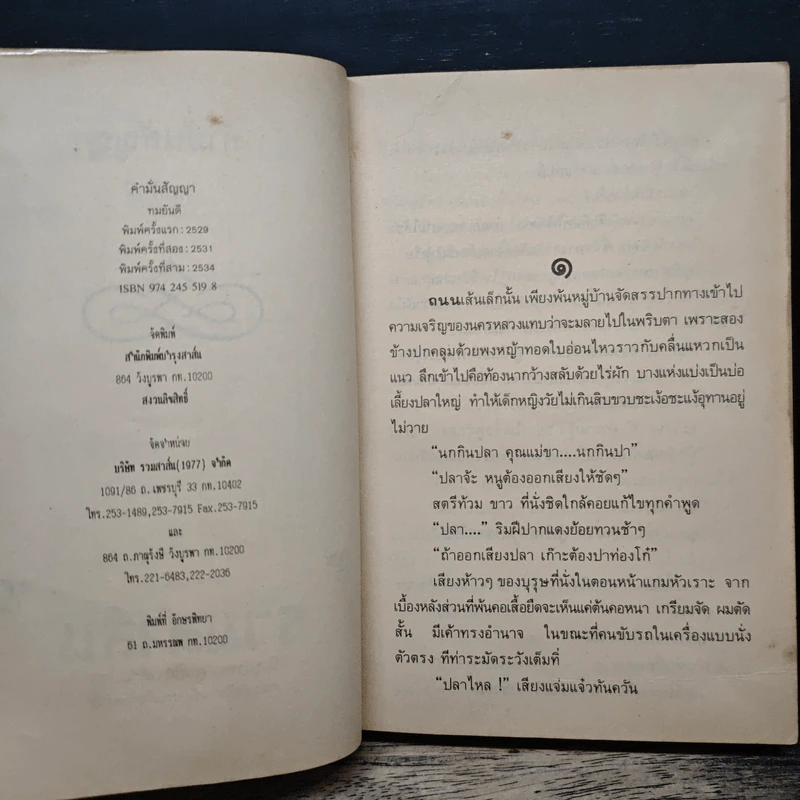 คำมั่นสัญญา
ทมยันตี
พิมพ์ครั้งแรก : 2529
พิมพ์ครั้งที่สอง : 2531
พิมพ์ครั้งที่สาม : 2534
ISBN 974 245 519 8
จัดพิมพ์
สำนักพิมพ์บำรุงสาส์น
864 วังบูรพา กท.10200
สงวนลิขสิทธิ์
จัดจำหน่าย
บริษัท รวมสาส์น(1977) จำกัด
1091/86 ถ.เพชรบุรี 33 กท.10402
โทร.253-1489,253-7915 Fax.253-7915
และ
864 ถ.ภาณุรังษี วังบูรพา กท.10200
โทร.221-6483,222-2036
พิมพ์ที่ อักษรพิทยา
61 ถ.มหรรณพ กท.10200
๑
ถนนเส้นเล็กนั้น เพียงพ้นหมู่บ้านจัดสรรปากทางเข้าไป
ความเจริญของนครหลวงแทบว่าจะมลายไปในพริบตา เพราะสอง
ข้างปกคลุมด้วยพงหญ้าทอดใบอ่อนไหวราวกับคลื่นแหวกเป็น
แนว ลึกเข้าไปคือท้องนากว้างสลับด้วยไร่ผัก บางแห่งแบ่งเป็นบ่อ
เลี้ยงปลาใหญ่ ทำให้เด็กหญิงวัยไม่เกินสิบขวบชะเง้อชะแง้อุทานอยู่
ไม่วาย
“นกกินปลา คุณแม่ขา....นกกินปา”
“ปลาจ้ะ หนูต้องออกเสียงให้ชัดๆ”
สตรีท้วม ขาว ที่นั่งชิดใกล้คอยแก้ไขทุกคำพูด
“ปลา....” ริมฝีปากแดงย้อยทวนช้าๆ
“ถ้าออกเสียงปลา เก๊าะต้องปาท่องโก๋”
เสียงห้าวๆ ของบุรุษที่นั่งในตอนหน้าแกมหัวเราะ จาก
เบื้องหลังส่วนที่พ้นคอเสื้อยืดจะเห็นแค่ต้นคอหนา เกรียมจัด ผมตัด
สั้น มีเค้าทรงอำนาจ ในขณะที่คนขับรถในเครื่องแบบนั่ง
ตัวตรง ทีท่าระมัดระวังเต็มที่
“ปลาไหล !” เสียงแจ่มแจ๋วทันควัน